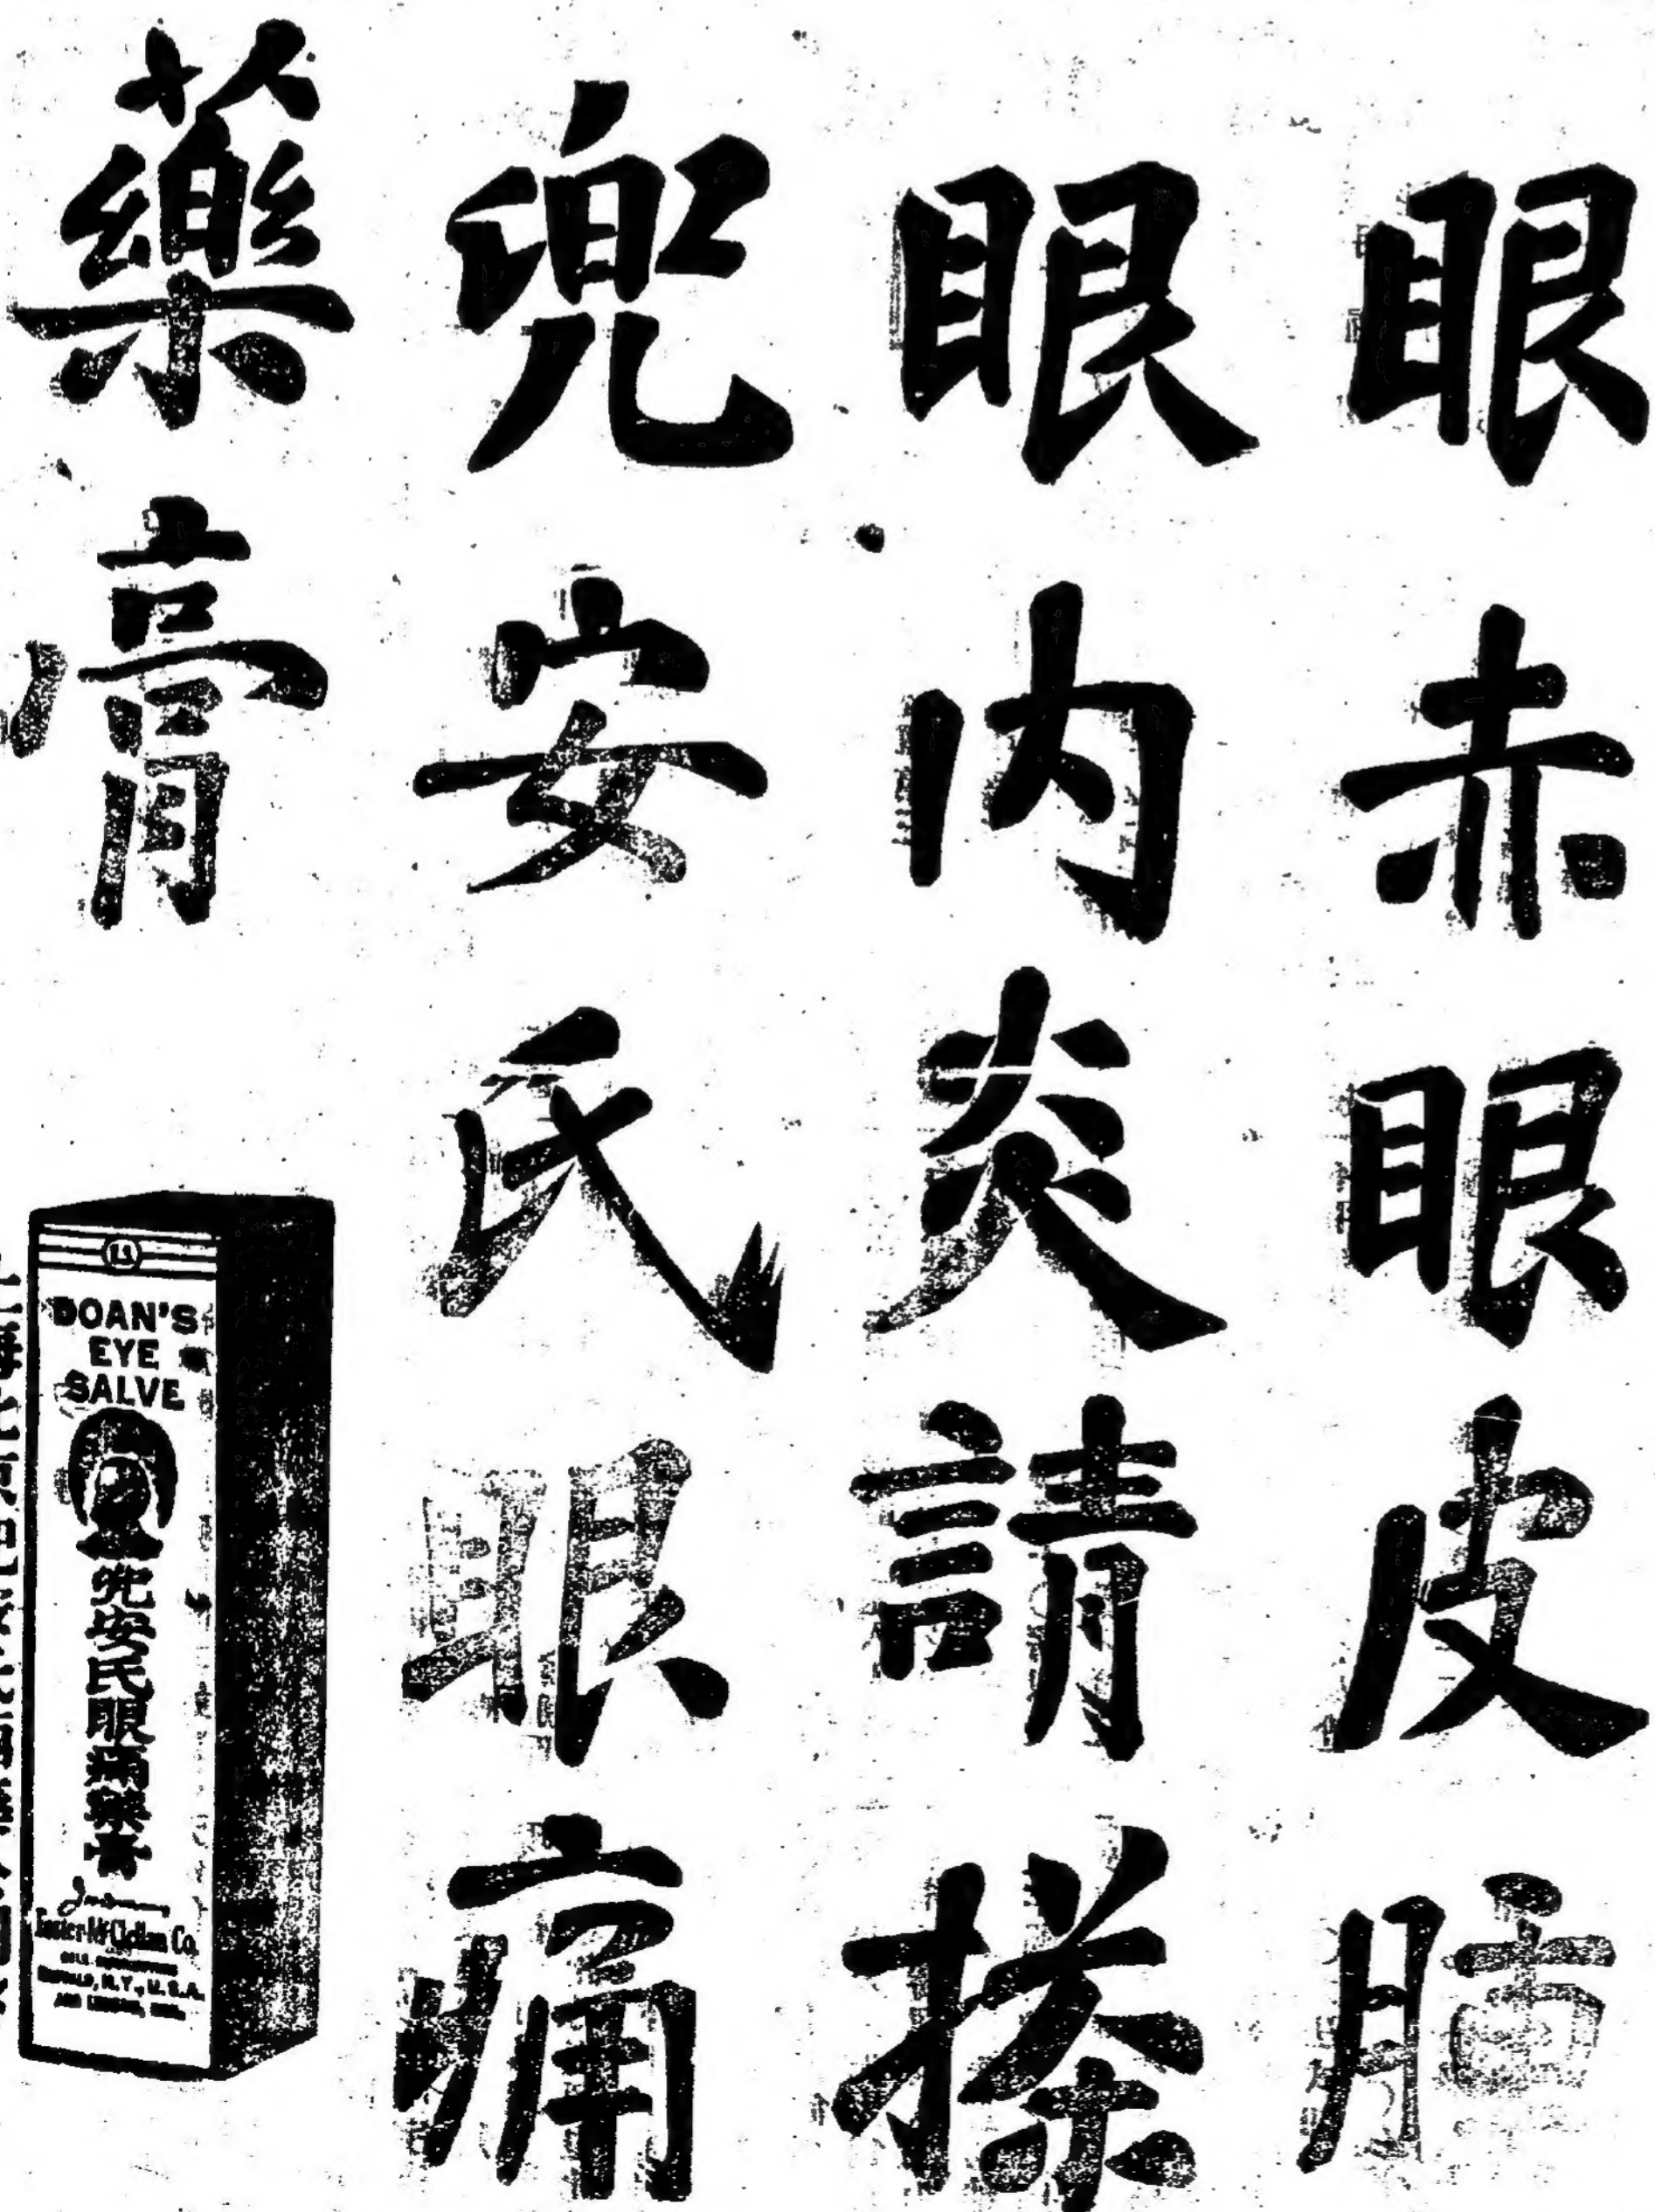 眼赤眼皮腫
眼内炎請搽
兜安氏眼痛
藥膏
DOAN'S
EYE
SALVE
兜安氏眼痛藥膏
Foster-McClellan Co.
BUFFALO, N.Y., U.S.A.